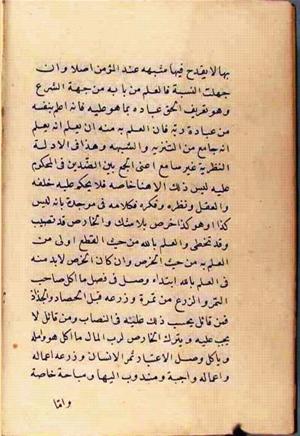 بها لا يقدح فيها متشبهه عند المؤمن اصلا وان
جهلت النسبة فالعلم من بابه من جهة الشرع
وهو تعريف الحق عباده بما هو عليه فانه اعلم بنفسه
من عباده به فان العلم به منه ان يعلم انه يعلم
انه جامع بين التنزيه والتشبيه وهذا في الادلة
النظرية غير سائغ اعنى الجمع بين الضدين في المحكوم
عليه ليس ذلك الا هنا خاصة فلا يحكم عليه خلقه
والعقل ونظره وفكره فكلامه في موجده بانه ليس
كذا او هو كذا خرص بلا شك والخارص قد تصيب
وقد تخطى والعلم بالله من حيث القطع اولى من
العلم به من حيث الخرص وان كان الخرص لا بد منه
في العلم بالله ابتداء وصل في فصل ما اكل صاحب
التمر والزرع من تمره وزرعه قبل الحصاد والجذاذ
فمن قائل يحسب ذلك عليه في النصاب ومن قائل لا
يجب عليه ويترك الخارص لرب المال ما اكل هو واهله
ويأكل وصل الاعتبار تمر الانسان وزرعه اعماله
واعماله واجبة ومندوب اليها ومباحة خاصة
واما